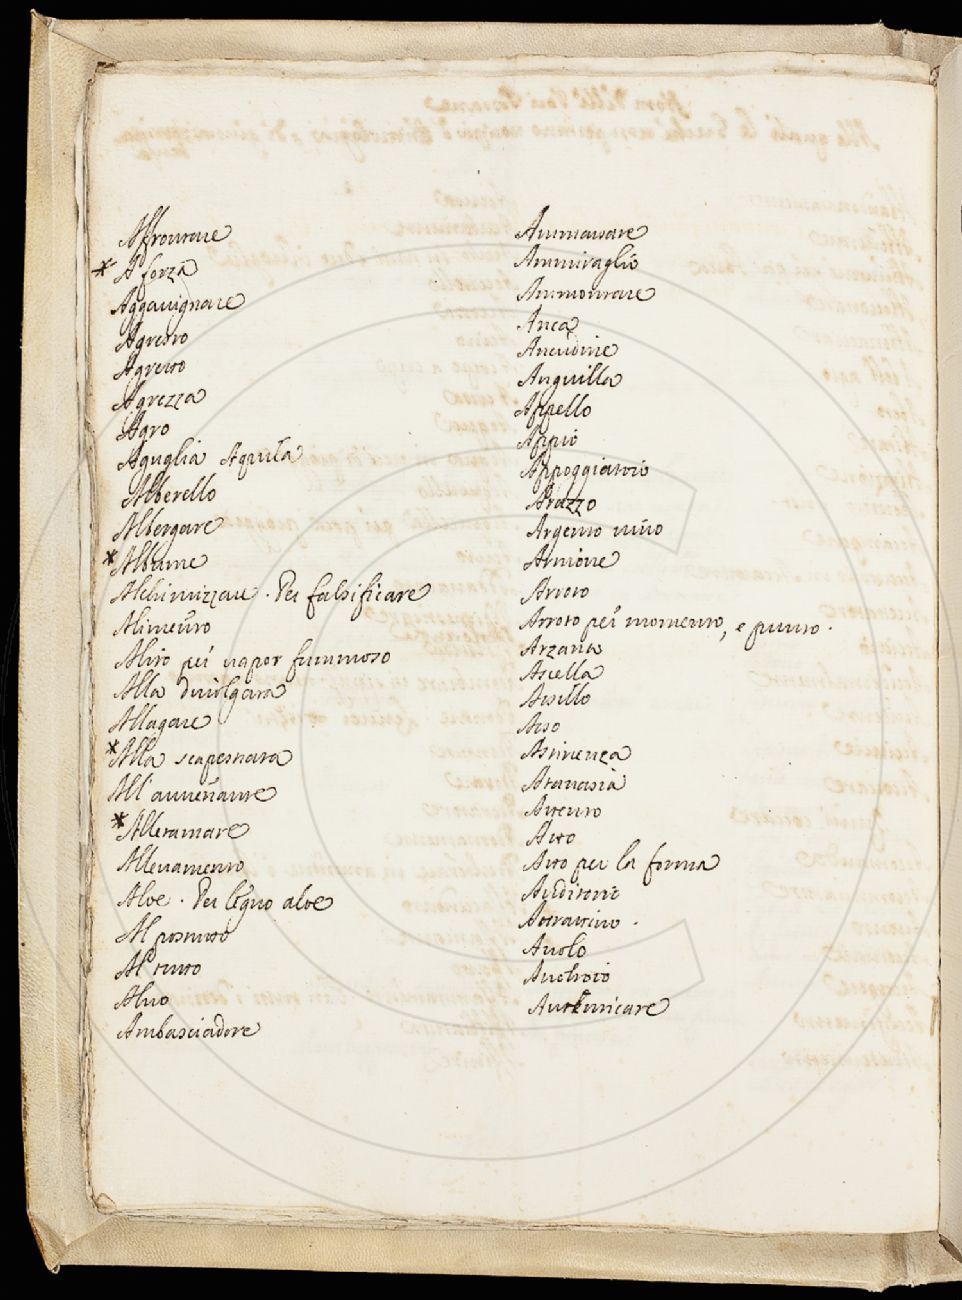 Affrontare
* A forza
Aggavignare
Agresto
Agretto
Agrezza
Agro
Aguglia Aquila
Alberello
Albergare
* Albume
Alchimizzare. Per falsificare
Alimento
Alito per vapor fummoso
Alla divolgata
Allagare
* Alla scapestrata
All'avvenante
* Allettamare
Allevamento
Aloe. Per legno aloe
Al postutto
Al tutto
Alvo
Ambasciadore
Ammassare
Ammiraglio
Ammontare
Anca
Ancudine
Anguilla
Appello
Appio
Appoggiatoio
Arazzo
Argento vivo
Arnione
Arroto
Arroto per momento, e punto.
Arzana
Ascella
Assillo
Asso
Astinenza
Atanasia
Attento
Atto
Atto per la forma
Auditorio
Avolo
Avoltoio
Autenticare